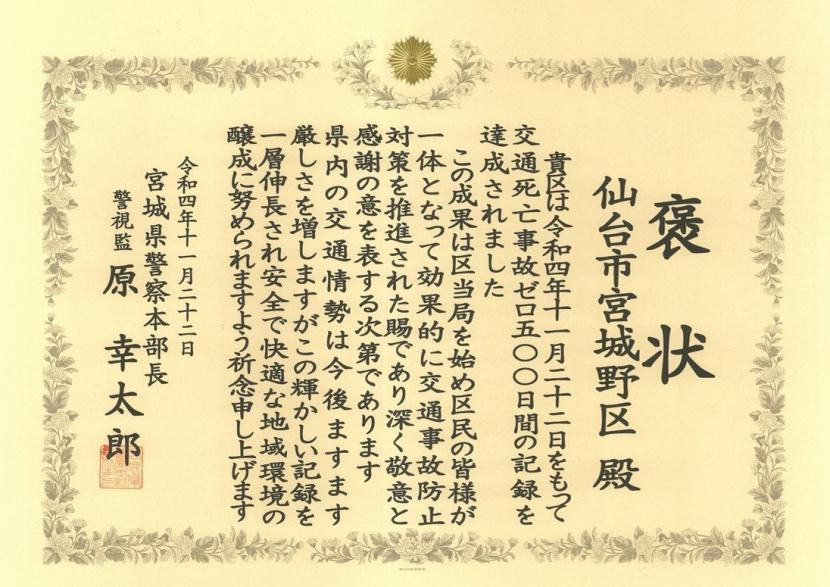 褒状
仙台市宮城野区殿
貴区は令和四年十一月二十二日をもって
交通死亡事故ゼロ五〇〇日間の記録を
達成されました
この成果は区当局を始め区民の皆様が
一体となって効果的に交通事故防止
対策を推進された賜であり深く敬意と
感謝の意を表する次第であります
県内の交通情勢は今後ますます
厳しさを増しますがこの輝かしい記録を
一層伸長され安全で快適な地域環境の
醸成に努められますよう祈念申し上げます
令和四年十一月二十二日
宮城県警察本部長
警視監 原幸太郎